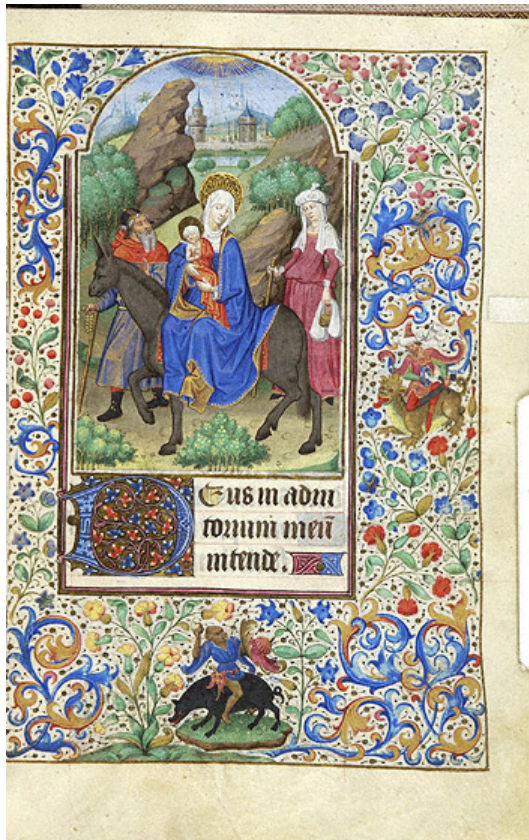 Deus in adiu
torium meū
intende.